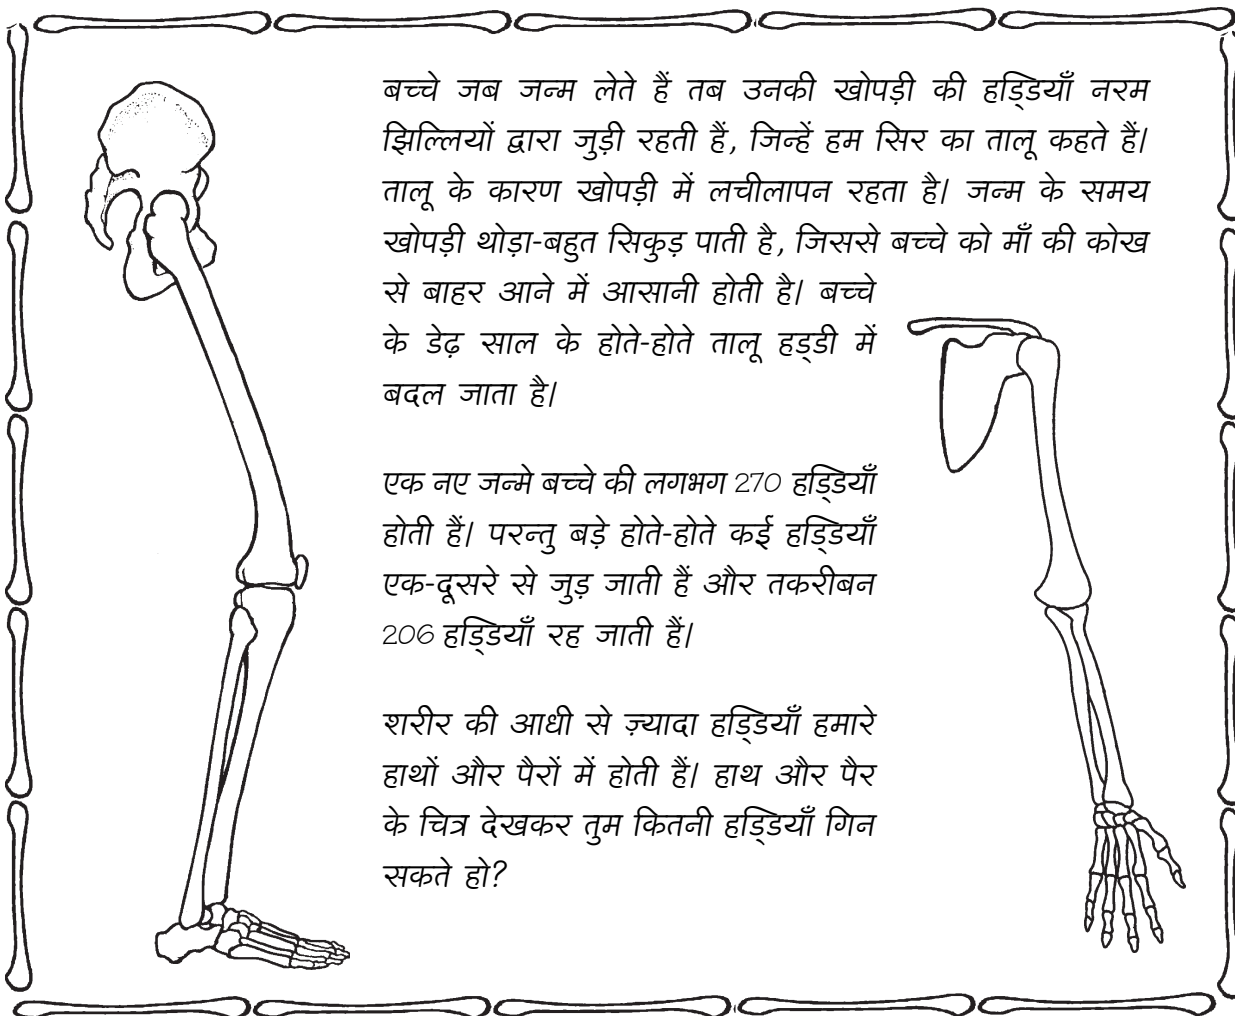 बच्चे जब जन्म लेते हैं तब उनकी खोपड़ी की हड्डियाँ नरम
झिल्लियों द्वारा जुड़ी रहती हैं, जिन्हें हम सिर का तालू कहते हैं।
तालू के कारण खोपड़ी में लचीलापन रहता है। जन्म के समय
खोपड़ी थोड़ा-बहुत सिकुड़ पाती है, जिससे बच्चे को माँ की कोख
से बाहर आने में आसानी होती है। बच्चे
के डेढ़ साल के होते-होते तालू हड्डी में
बदल जाता है।
एक नए जन्मे बच्चे की लगभग 270 हड्डियाँ
होती हैं। परन्तु बड़े होते-होते कई हड्डियाँ
एक-दूसरे से जुड़ जाती हैं और तकरीबन
206 हड्डियाँ रह जाती हैं।
शरीर की आधी से ज़्यादा हड्डियाँ हमारे
हाथों और पैरों में होती हैं। हाथ और पैर
के चित्र देखकर तुम कितनी हड्डियाँ गिन
सकते हो?